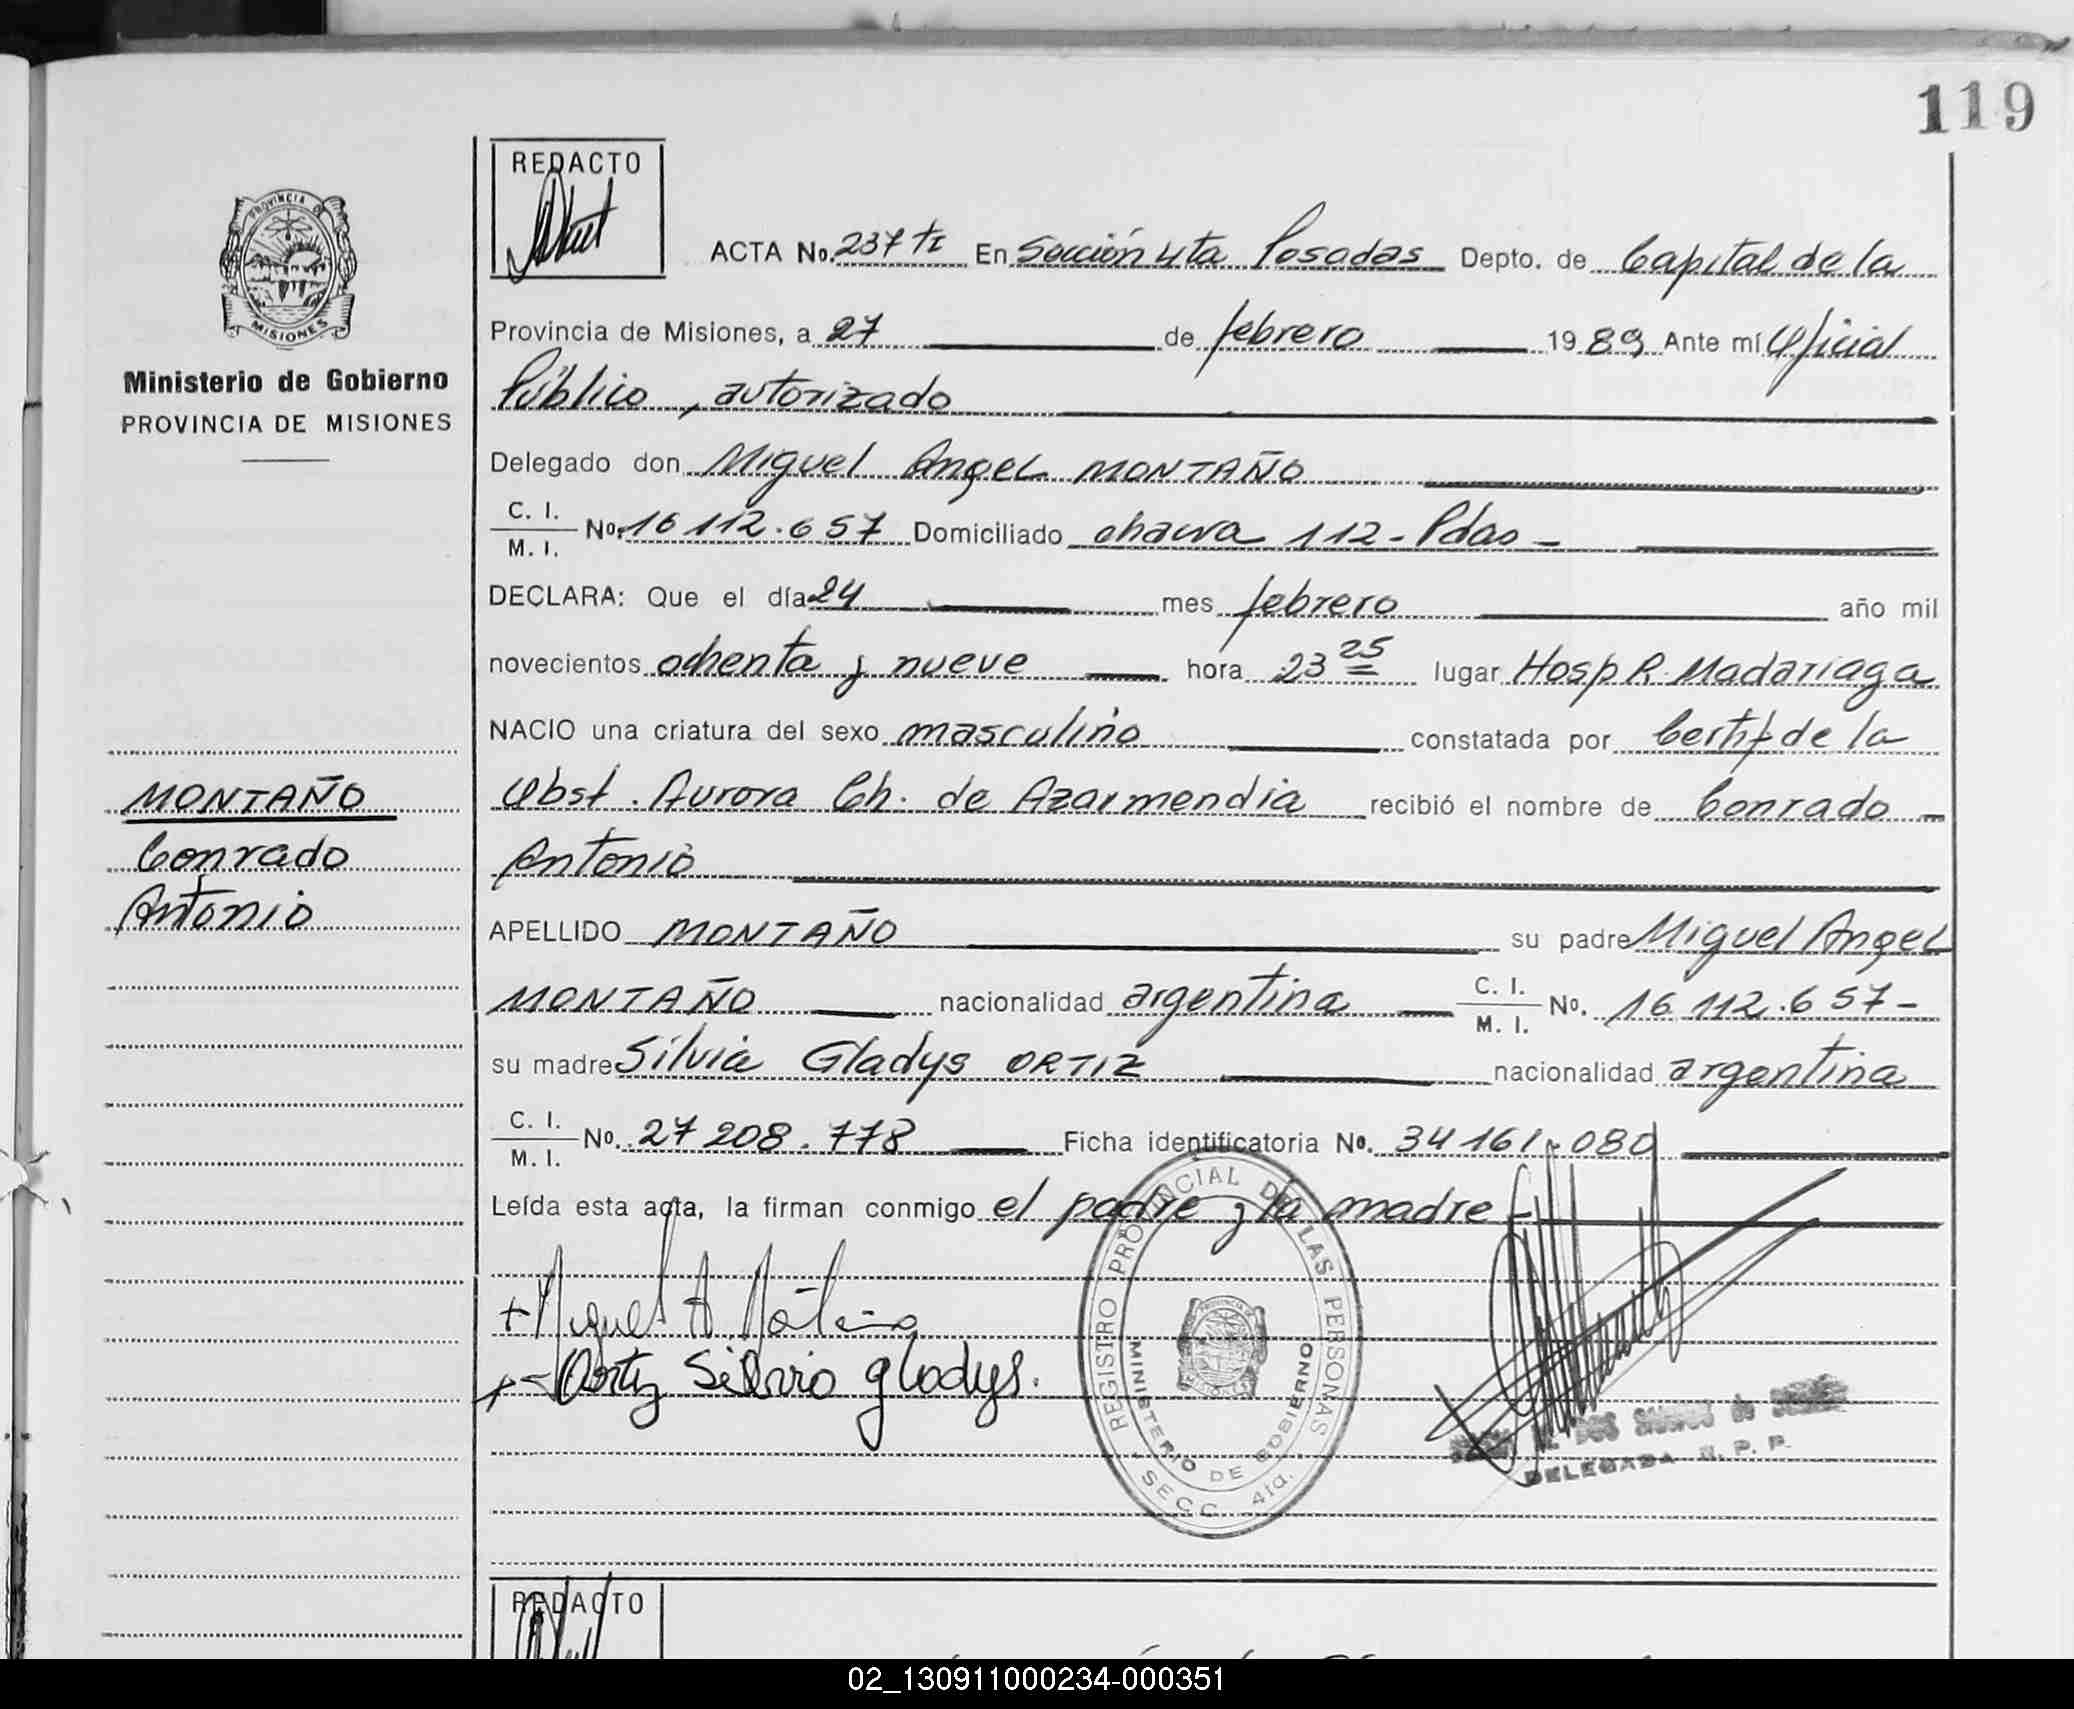 119
REDACTO
ACTA No. 237 tz En Sección 4ta Posadas Depto. de Capital de la
Provincia de Misiones, a 27 de febrero 1989 Ante mí Oficial
Público, autorizado
Delegado don Miguel Angel MONTAÑO
C. I. / M. I. No. 16 112.657 Domiciliado chacra 112 - Pdas -
DECLARA: Que el día 24 mes febrero año mil
novecientos ochenta y nueve hora 23 25 lugar Hosp R. Madariaga
NACIO una criatura del sexo masculino constatada por Certif de la
Obst. Aurora Ch. de Azarmendia recibió el nombre de Conrado
Antonio
APELLIDO MONTAÑO su padre Miguel Angel
MONTAÑO nacionalidad argentina C. I. / M. I. No. 16 112.657 -
su madre Silvia Gladys ORTIZ nacionalidad argentina
C. I. / M. I. No. 27 208.778 Ficha identificatoria No. 34 161.080
Leída esta acta, la firman conmigo el padre y la madre -
Miguel A
Ortiz Silvia gladys.
PROVINCIA DE
MISIONES
Ministerio de Gobierno
PROVINCIA DE MISIONES
MONTAÑO
Conrado
Antonio
REGISTRO PROVINCIAL DE LAS PERSONAS
MINISTERIO DE GOBIERNO
SECC. 4ta.
DELEGADA R. P. P.
REDACTO
02_130911000234-000351